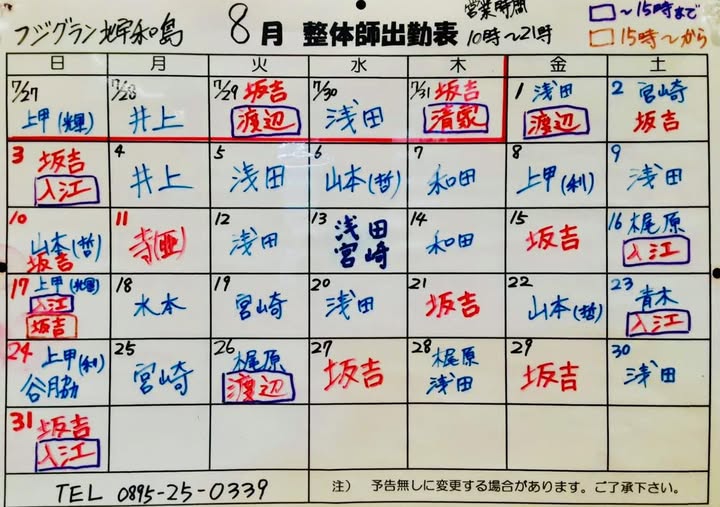 フジグラン北宇和島
8月 整体師出勤表
営業時間
10時〜21時
〜15時まで
15時〜から
日 月 火 水 木 金 土
7/27 上甲(輝)
7/28 井上
7/29 坂吉 渡辺
7/30 浅田
7/31 坂吉 清家
1 浅田 渡辺
2 宮崎 坂吉
3 坂吉 入江
4 井上
5 浅田
6 山本(哲)
7 和田
8 上甲(利)
9 浅田
10 山本(哲) 坂吉
11 寺(亜)
12 浅田
13 浅田 宮崎
14 和田
15 坂吉
16 梶原 入江
17 上甲(輝) 入江 坂吉
18 水本
19 宮崎
20 浅田
21 坂吉
22 山本(哲)
23 青木 入江
24 上甲(利) 谷脇
25 宮崎
26 梶原 渡辺
27 坂吉
28 梶原 浅田
29 坂吉
30 浅田
31 坂吉 入江
TEL 0895-25-0339
注) 予告無しに変更する場合があります。ご了承下さい。